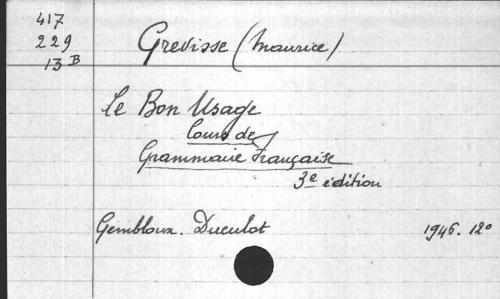 417
229
13 B
Grevisse (Maurice)
Le Bon Usage
Cours de
Grammaire Française
3e édition
Gembloux. Duculot
1946. 12o